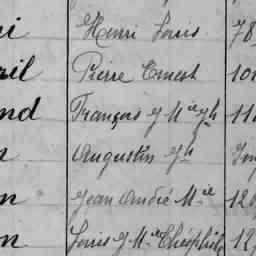 i Henri Louis 78
ril Pierre Ernest 10
nd François J Mie Jh 11
n Augustin Jh
n Jean André Mie 12
n Louis J Mie Théophile 12